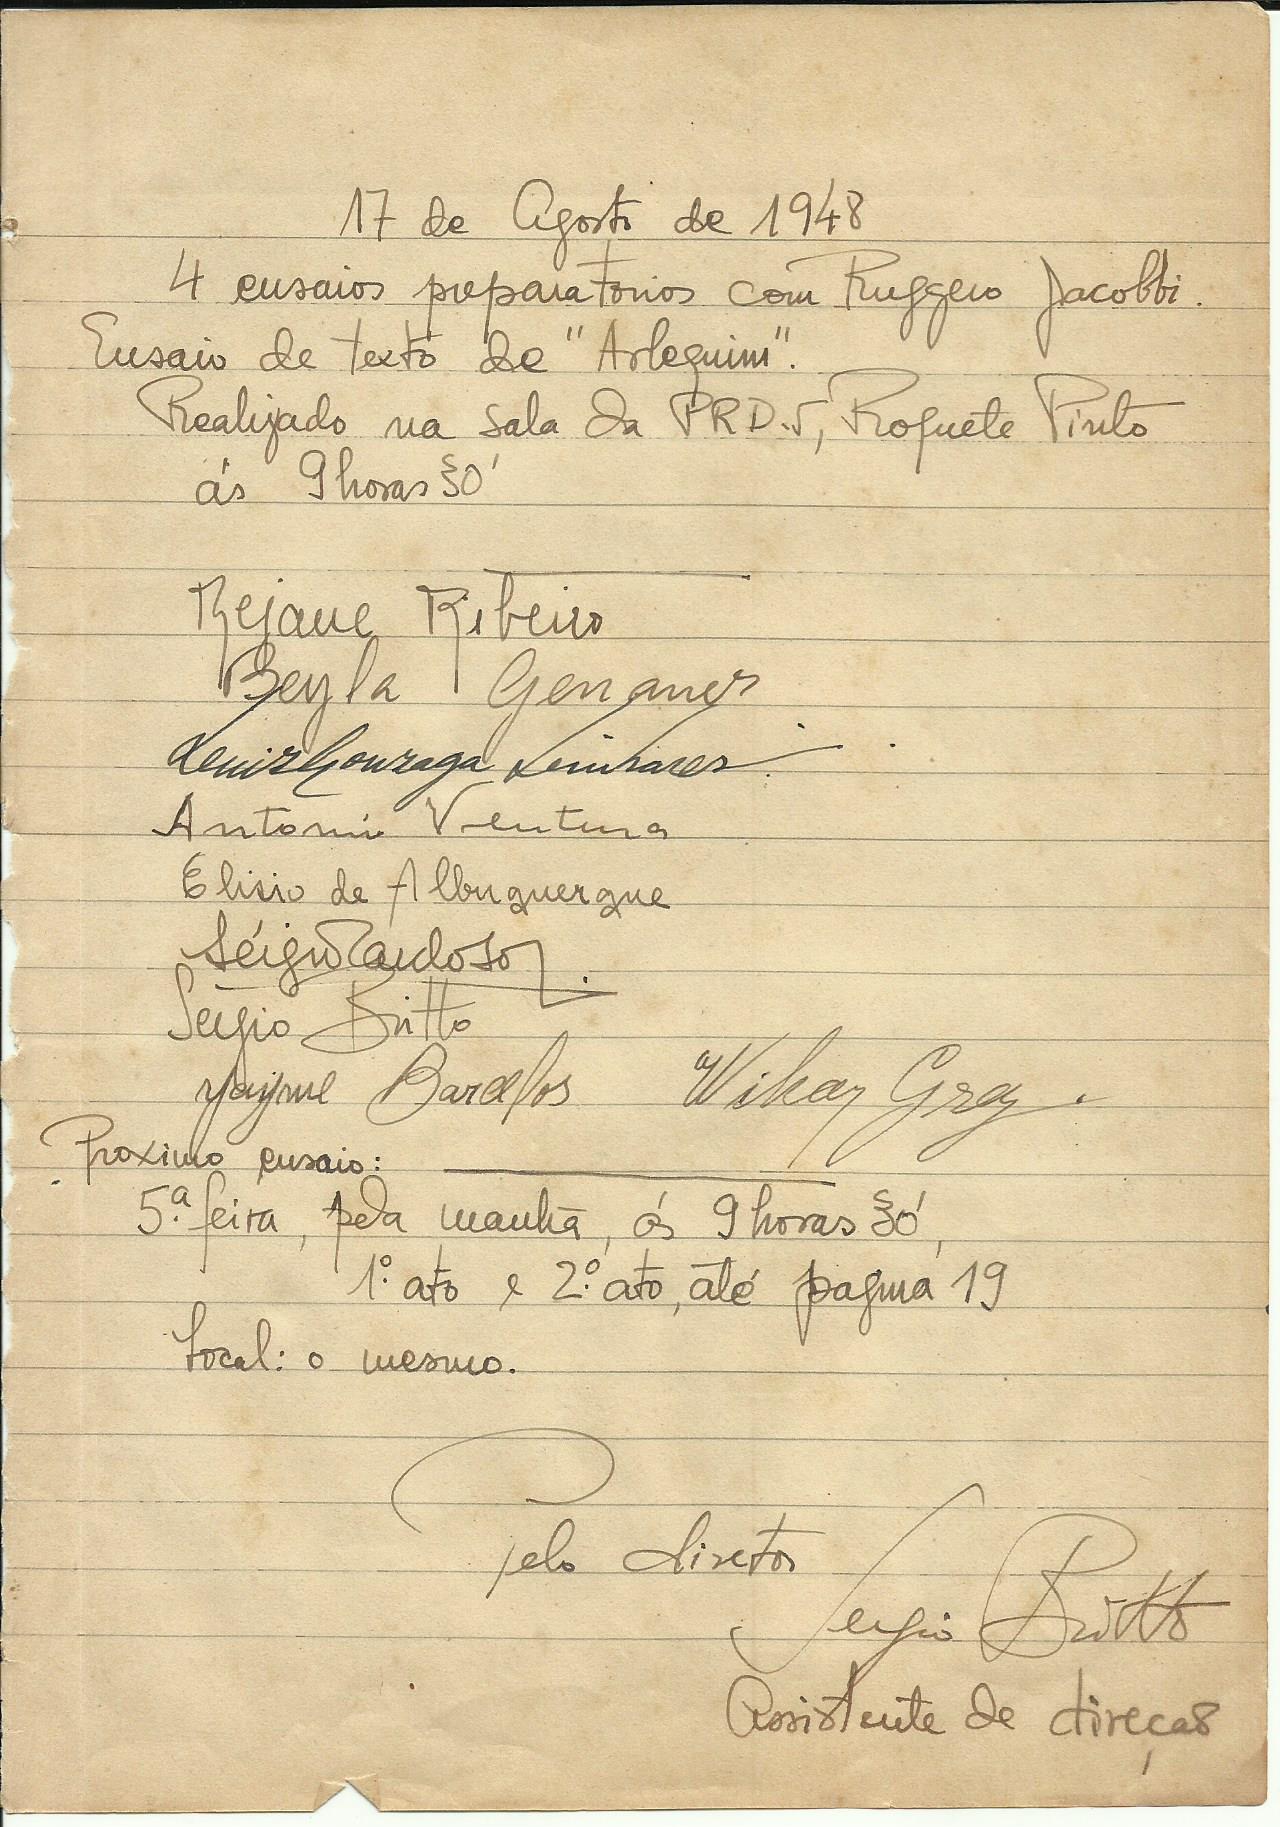 17 de Agosto de 1948
4 ensaios preparatorios com Ruggero Jacobbi.
Ensaio de texto de "Arlequim".
Realizado na sala da PRD.5, Roquete Pinto
ás 9 horas 30'
Rejane Ribeiro
Beyla Genauer
Luiz Gonzaga Linhares
Antonio Ventura
Elisio de Albuquerque
Sérgio Cardoso
Sergio Britto
Jayme Barcelos
Proximo ensaio:
5.ª feira, pela manhã, ás 9 horas 30',
1.º ato e 2.º ato, até pagina 19
Local: o mesmo.
Pelo diretor
Sergio Britto
Assistente de direção